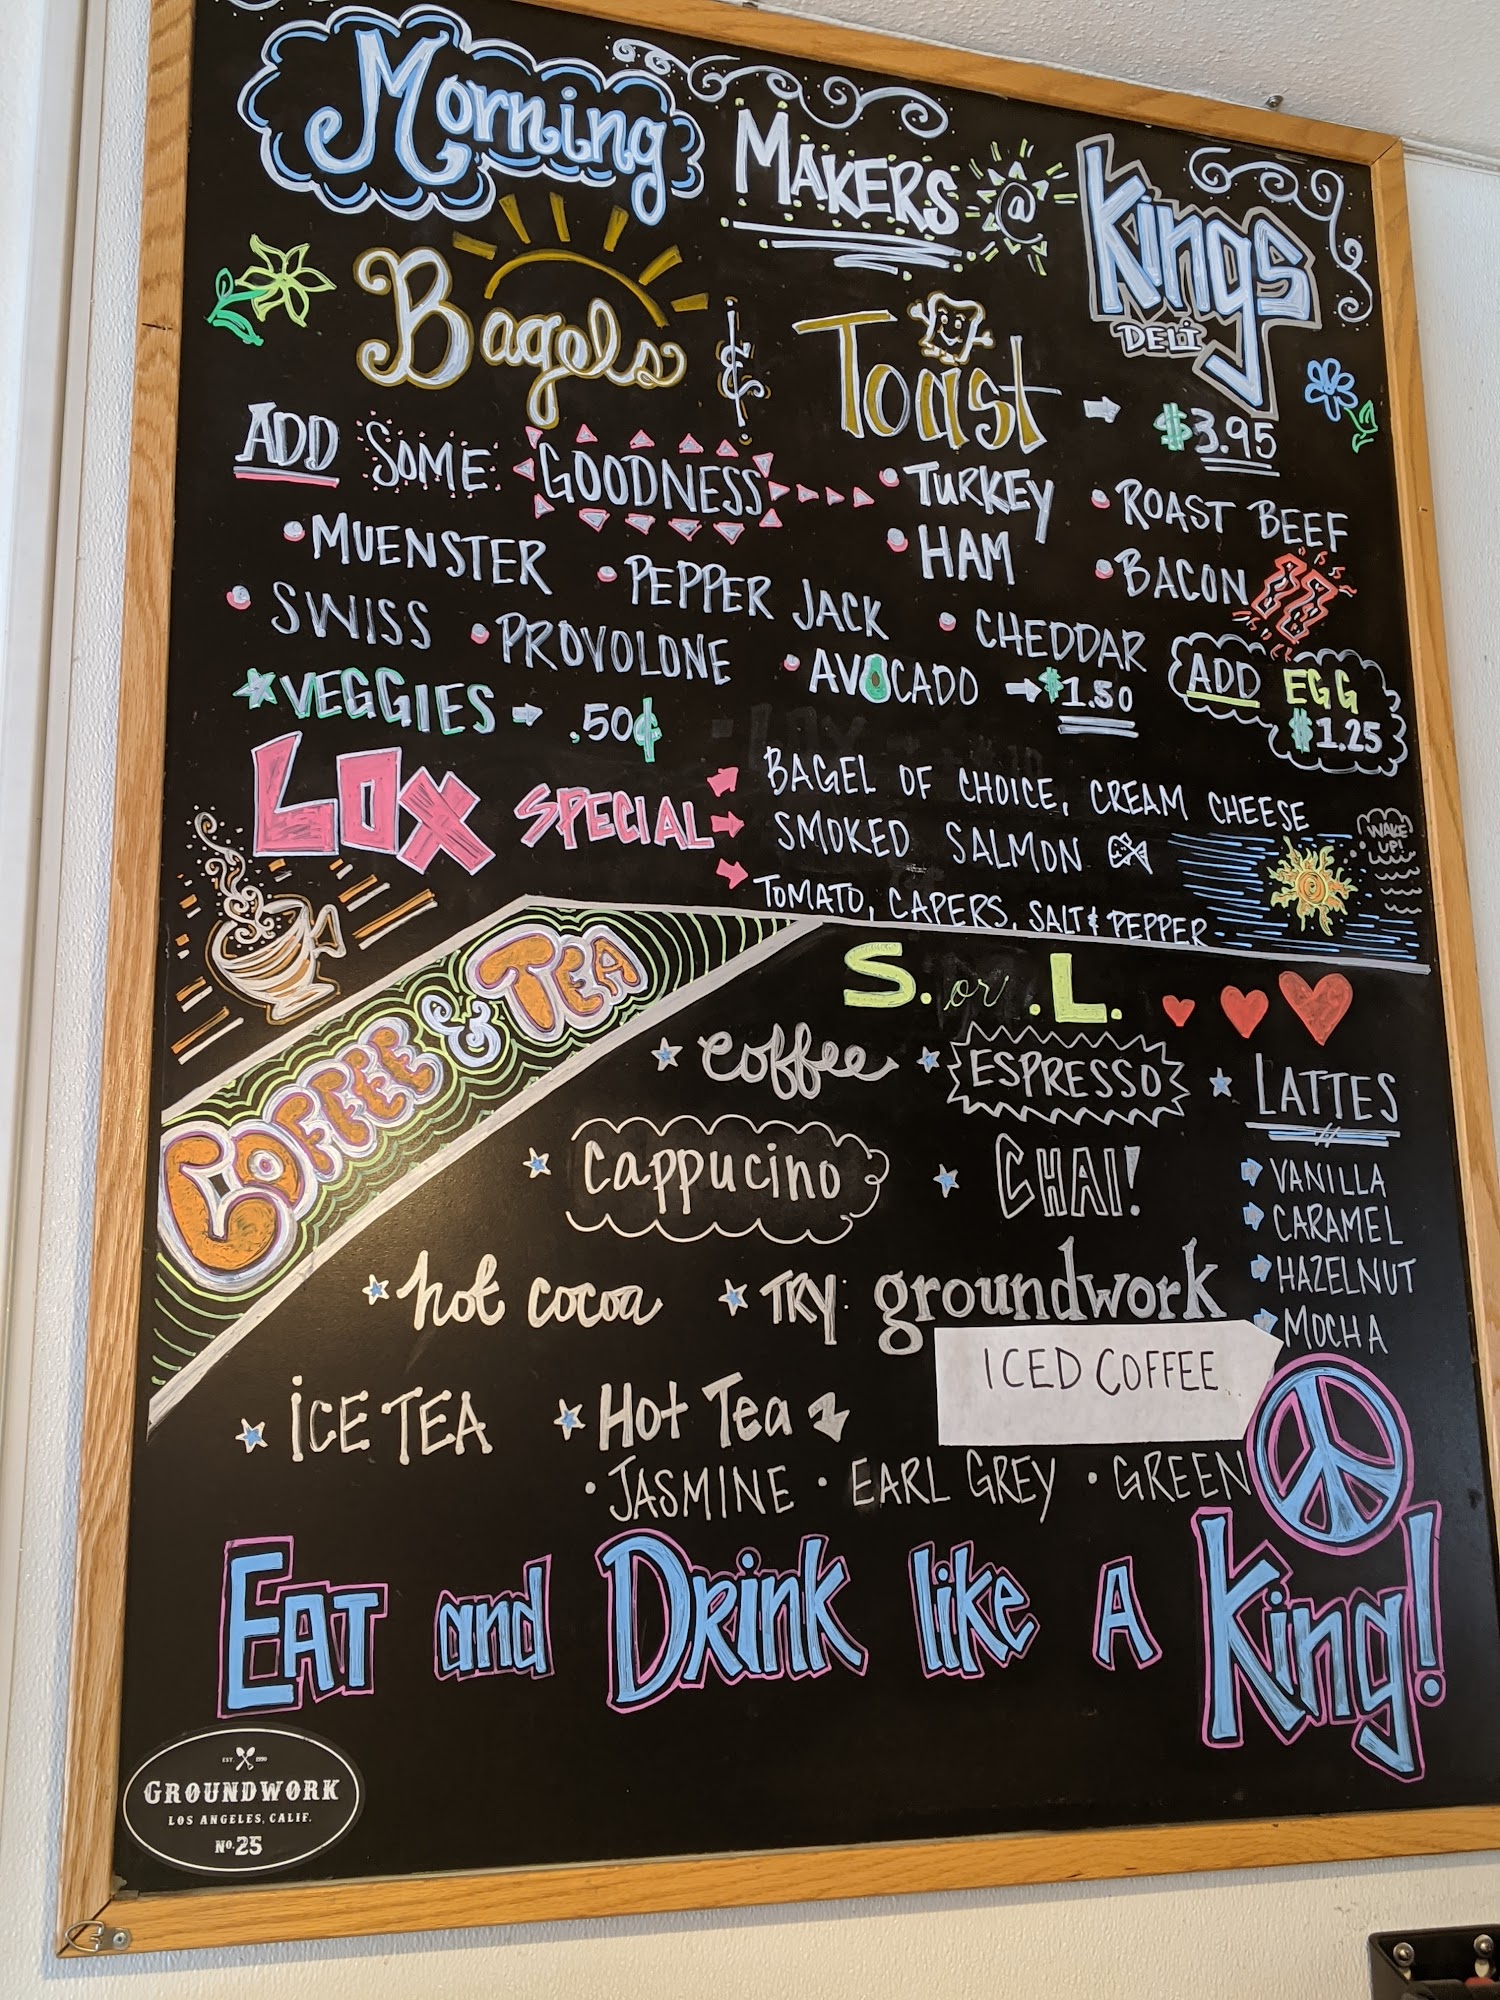 Morning MAKERS @ Kings
DELI
Bagels & Toast → $3.95
ADD SOME GOODNESS • TURKEY • ROAST BEEF
• MUENSTER • HAM • BACON
• PEPPER JACK
• SWISS • PROVOLONE • CHEDDAR
• AVOCADO → $1.50
★ VEGGIES → .50¢
ADD EGG
$1.25
LOX SPECIAL → BAGEL OF CHOICE, CREAM CHEESE
→ SMOKED SALMON
→ TOMATO, CAPERS, SALT & PEPPER
WAKE
UP!
COFFEE & TEA
S. or .L.
★ coffee ★ ESPRESSO ★ LATTES
★ cappucino ★ CHAI!
→ VANILLA
→ CARAMEL
→ HAZELNUT
→ MOCHA
★ hot cocoa ★ TRY: groundwork
ICED COFFEE
★ ICE TEA ★ Hot Tea
• JASMINE • EARL GREY • GREEN
EAT and DRink like A King!
EST. 1990
GROUNDWORK
LOS ANGELES, CALIF.
No. 25